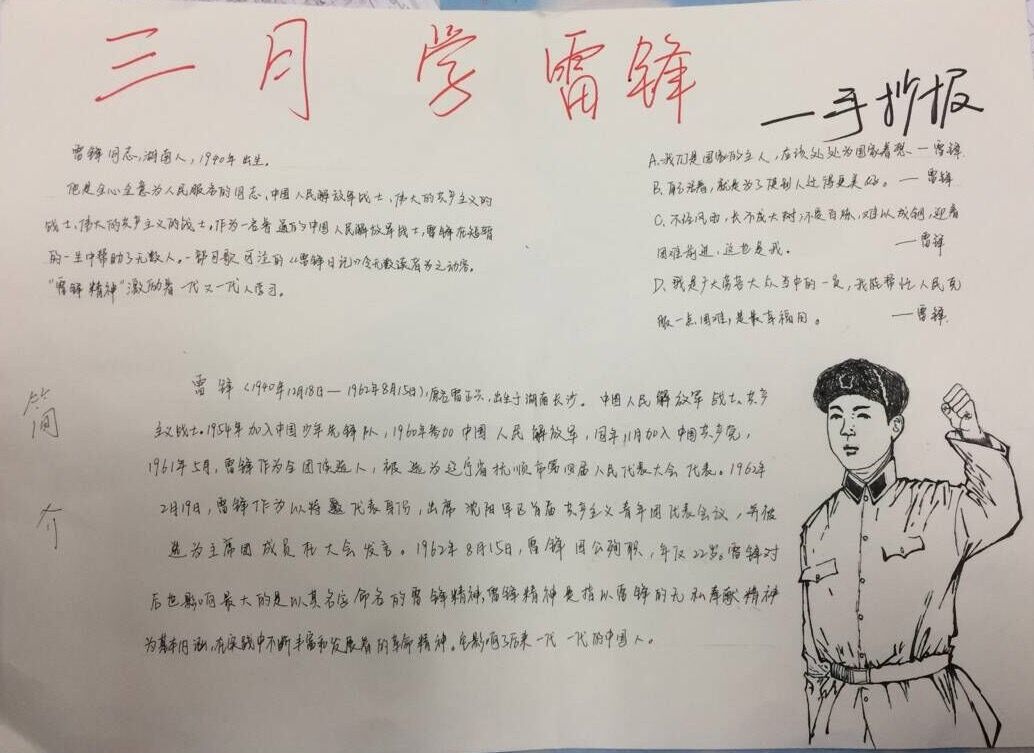 三月学雷锋
一手抄报
雷锋同志,湖南人,1940年出生。
他是全心全意为人民服务的同志、中国人民解放军战士、伟大的共产主义的
战士、伟大的共产主义的战士。作为一名普通的中国人民解放军战士,雷锋在短暂
的一生中帮助了无数人。一部可歌可泣的《雷锋日记》令无数读者为之动容。
"雷锋精神"激励着一代又一代人学习。
A、我们是国家的主人,应该处处为国家着想。—雷锋
B、自己活着,就是为了使别人过得更美好。—雷锋
C、不经风雨,长不成大树;不受百炼,难以成钢,迎着
困难前进,这也是我。—雷锋
D、我是广大劳苦大众当中的一员,我能帮忙人民克
服一点困难,是最幸福的。—雷锋
简介
雷锋(1940年12月18日—1962年8月15日),原名雷正兴,出生于湖南长沙。中国人民解放军战士、共产
主义战士。1954年加入中国少年先锋队,1960年参加中国人民解放军,同年,11月加入中国共产党,
1961年5月,雷锋作为全团候选人,被选为辽宁省抚顺市第四届人民代表大会代表。1962年
2月19日,雷锋作为以特邀代表身份,出席沈阳军区首届共产主义青年团代表会议,并被
选为主席团成员在大会发言。1962年8月15日,雷锋因公殉职,年仅22岁。雷锋对
后世影响最大的是以其名字命名的雷锋精神,雷锋精神是指以雷锋的无私奉献精神
为基本内涵,在实践中不断丰富和发展着的革命精神。它影响了后来一代一代的中国人。